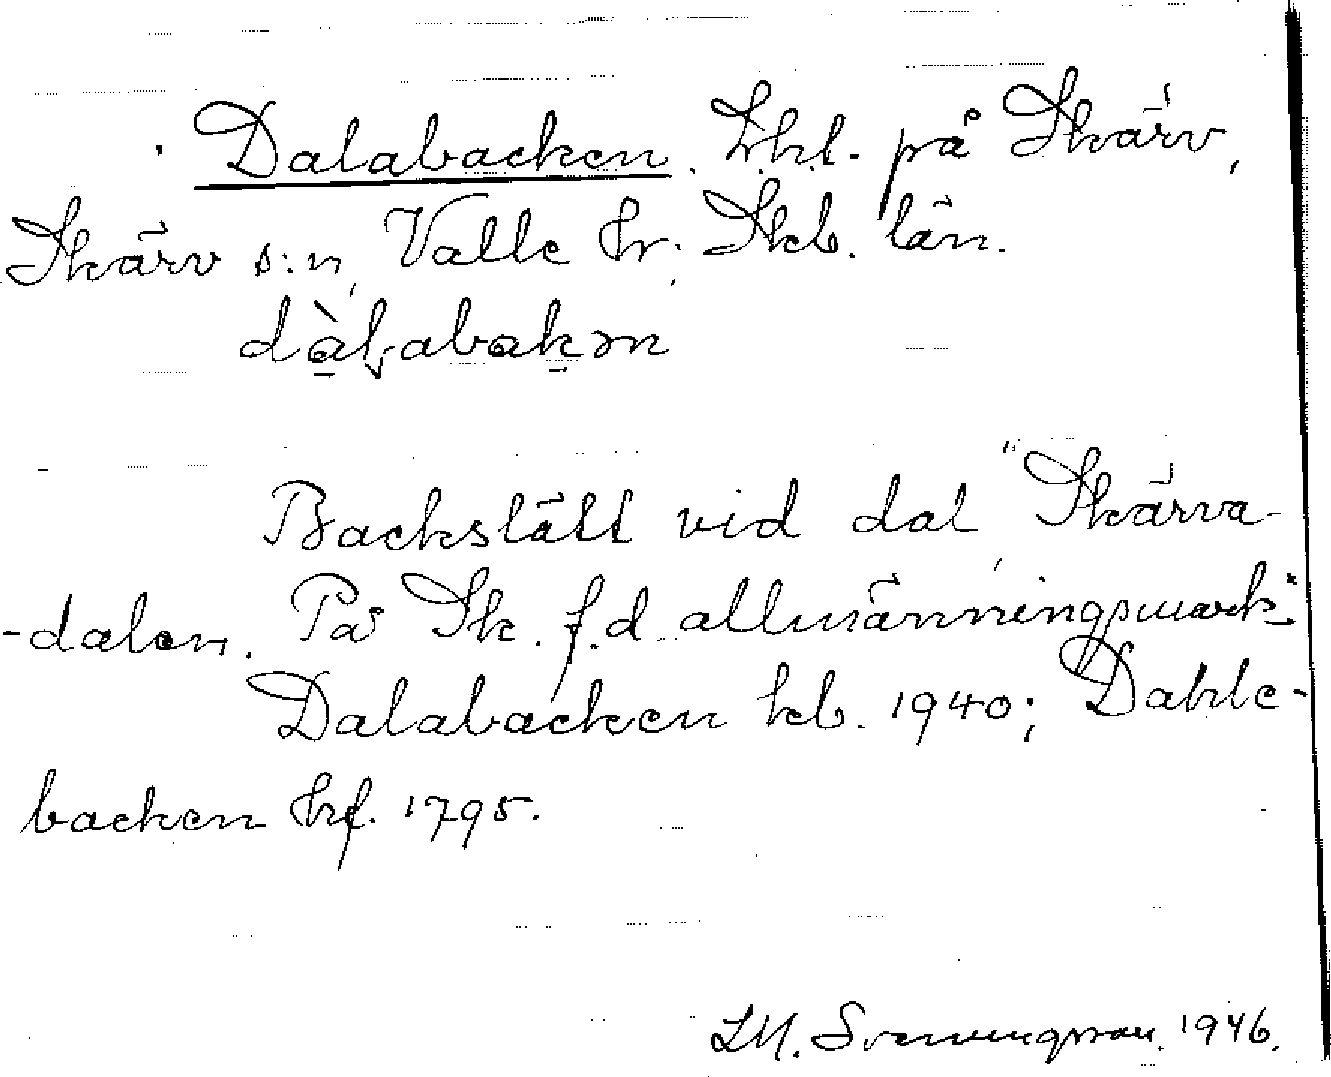 Dalabacken. Lht. på Skärv,
Skärv s:n, Valle hr; Skb. län.
dàḷabakən
Backslätt vid dal, "Skärva-
-dalen. På Sk. f.d. allmänningsmark."
Dalabacken kb. 1940; Dahle-
backen hrf. 1795.
LM. Svenungsson. 1946.